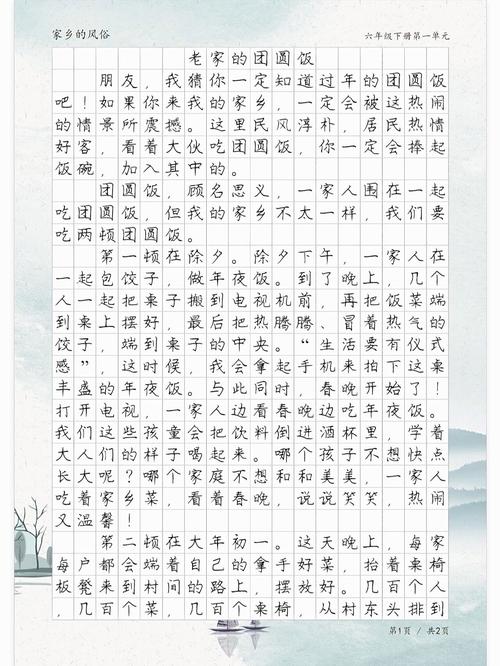 家乡的风俗
六年级下册第一单元
老家的团圆饭
朋友，我猜你一定知道过年的团圆饭
吧！如果你来我的家乡，一定会被这热闹
的情景所震撼。这里民风淳朴，居民热情
好客，看着大伙吃团圆饭，你一定会捧起
饭碗，加入其中的。
团圆饭，顾名思义，一家人围在一起
吃团圆饭，但我的家乡不太一样，我们要
吃两顿团圆饭。
第一顿在除夕。除夕下午，一家人在
一起包饺子，做年夜饭。到了晚上，几个
人一起把桌子搬到电视机前，再把饭菜端
到桌上摆好，最后把热腾腾、冒着热气的
饺子，端到桌子的中央。“生活要有仪式
感”，这时候，我会拿起手机来拍下这桌
丰盛的年夜饭。与此同时，春晚开始了！
打开电视，一家人边看春晚边吃年夜饭。
我们这些孩童会把饮料倒进酒杯里，学着
大人们的样子喝起来。哪个孩子不想快点
长大呢？哪个家庭不想和和美美，一家人
吃着家乡菜，看着春晚，说说笑笑，热闹
又温馨！
第二顿在大年初一。这天晚上，每家
每户都会端着自己的拿手好菜，抬着桌椅
板凳来到村间的路上，摆放好。几百个人
，几百个菜，几百个桌椅，从村东头排到
第1页 / 共2页